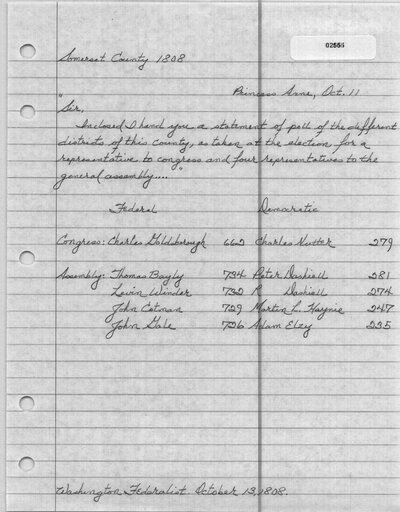 02555
Somerset County 1808
Princess Anne, Oct. 11
"Sir,
Inclosed I hand you a statement of poll of the different
districts of this county, as taken at the election for a
representative to congress and four representatives to the
general assembly...."
Federal Democratic
Congress: Charles Goldsborough 662 Charles Nutter 279
Assembly: Thomas Bayly 734 Peter Dashiell 281
Levin Winder 732 R Dashiell 274
John Cotman 729 Martin L. Haynie 247
John Gale 726 Adam Elzy 235
Washington Federalist. October 13, 1808.